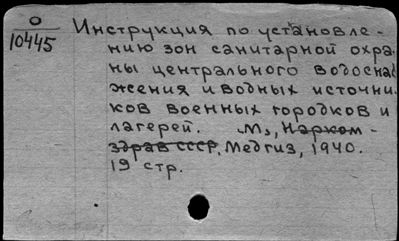 О
10445
Инструкция по установле-
нию зон санитарной охра-
ны центрального водоснаб
жения и водных источни-
ков военных городков и
лагерей. М., Нарком-
здрав СССР, Медгиз, 1940.
19 стр.